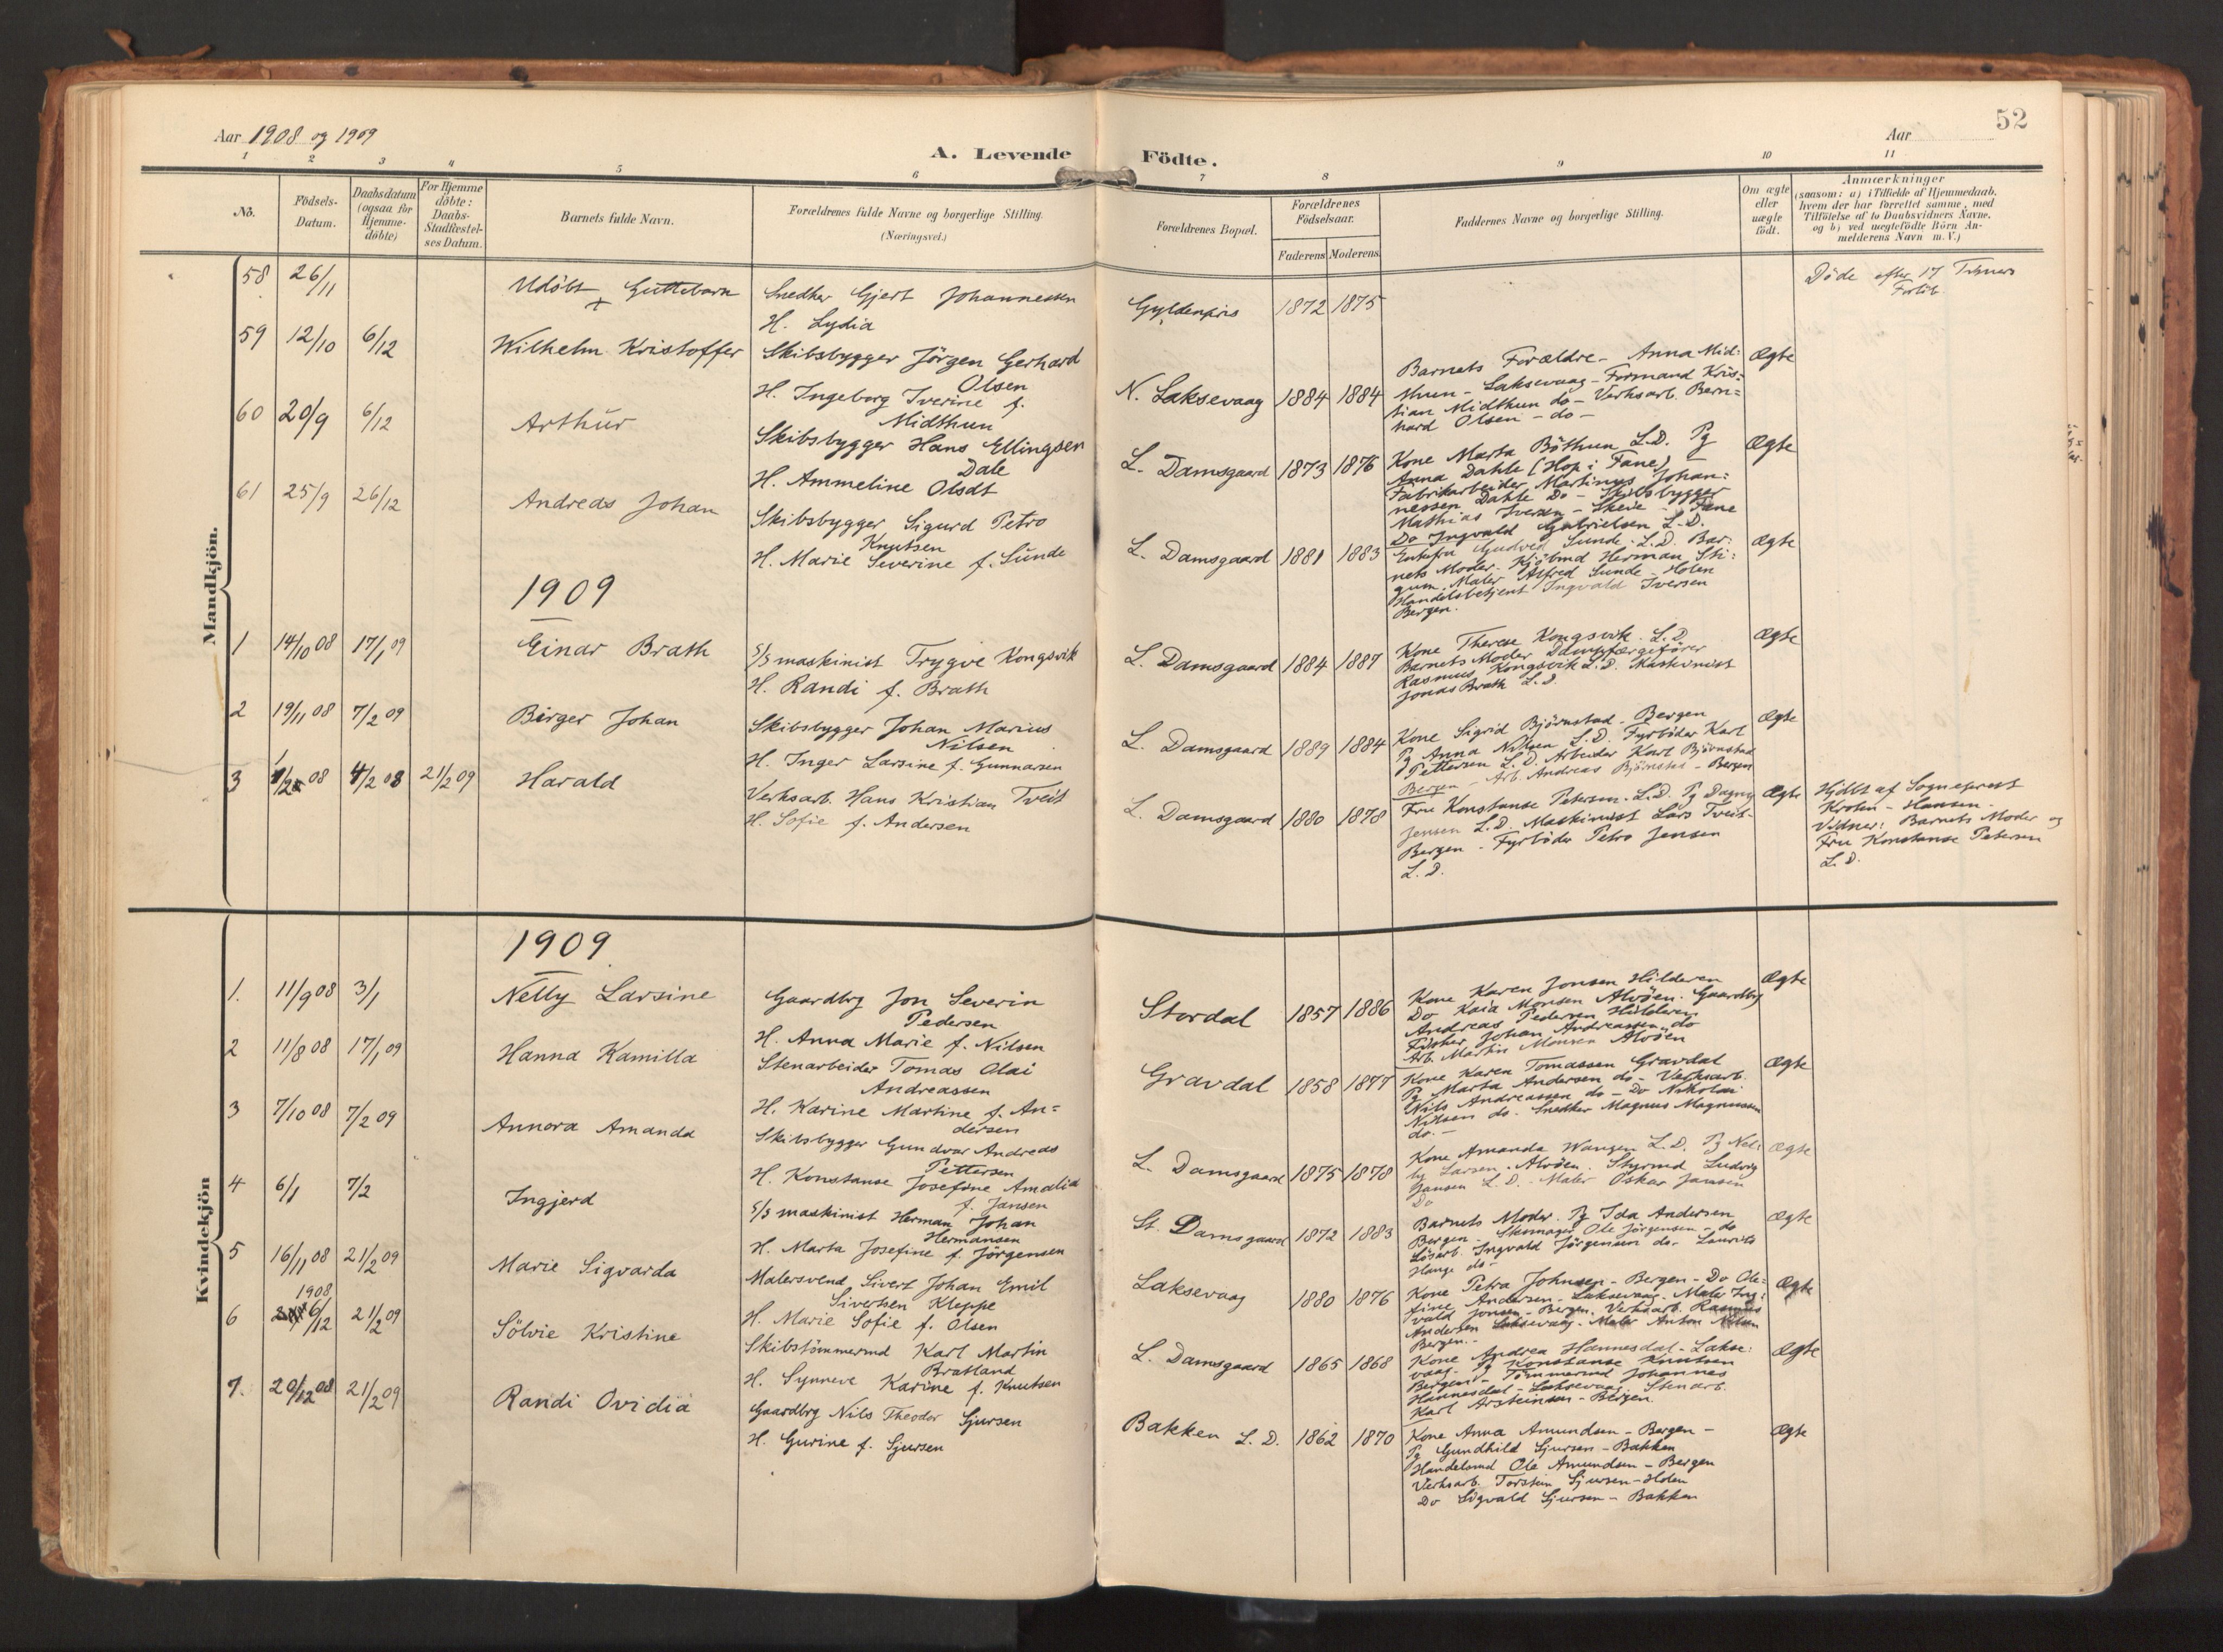 Aar 1908 og 1909
A. Levende Födte.
Aar
52
1 2 3 4 5 6 7 8 9 10 11
No.
Födsels-Datum.
Daabsdatum (ogsaa for Hjemme-döbte)
For Hjemme döbte: Daabs-Stadfæstel-ses Datum.
Barnets fulde Navn.
Forældrenes fulde Navne og borgerlige Stilling.
(Næringsvei.)
Forældrenes Bopæl.
Forældrenes Födselsaar.
Faderens Moderens
Faddernes Navne og borgerlige Stilling.
Om ægte eller uægte födt.
Anmærkninger
(saasom: a) i Tilfælde af Hjemmedaab,
hvem der har forrettet samme, med
Tilföielse af to Daabsvidners Navne,
og b) ved uægtefödte Börn An-
melderens Navn m. V.)
Mandkjön.
58 26/11 Udöbt Guttebarn
+
Snedker Gjert Johannessen
H. Lydia
Gyldenpris 1872 1875
Döde efter 17 Timers
Forlöb
59 12/10 6/12 Wilhelm Kristoffer
Skibsbygger Jörgen Gerhard
Olsen
H. Ingeborg Iverine f.
Midthun
N. Laksevaag 1884 1884
Barnets Forældre - Anna Mid-
thun - Laksevaag - Formand Kris-
tian Midthun do - Verksarb. Bern-
hard Olsen - do -
Ægte
60 20/9 6/12 Arthur
Skibsbygger Hans Ellingsen
Dale
H. Ammeline Olsdt
L. Damsgaard 1873 1876
Kone Marta Böthun L.D. Pg
Anna Dahle (Hop i Fane)
Fabrikarbeider Martinus Johan-
nessen Dahle Do - Skibsbygger
Mathias Iversen - Skeie - Fane
Do Ingvald Gabrielsen L.D.
Ægte
61 25/9 26/12 Andreas Johan
Skibsbygger Sigurd Petro
Knutsen
H. Marie Severine f. Sunde
L. Damsgaard 1881 1883
Enkefru Gudved Sunde L.D. Bar-
nets Moder. Kjöbmd Herman
Maler Alfred Sunde - Holen
Handelsbetjent Ingvald Iversen
Bergen.
Ægte
1909
1 14/10 08 17/1 09 Einar Brath
S/S maskinist Trygve Kongsvik
H. Randi f. Brath
L. Damsgaard 1884 1887
Kone Therese Kongsvik L.D.
Barnets Moder Dampfærgefører
Rasmus Kongsvik L.D. Maskinist
Jonas Brath L.D.
Ægte
2 19/11 08 7/2 09 Birger Johan
Skibsbygger Johan Marius
Nilsen
H. Inger Larsine f. Gunnarsen
L. Damsgaard 1889 1884
Kone Sigrid Björnstad - Bergen
Pg Anna Nilsen L.D. Fyrböder Karl
Pettersen L.D. Arbeider Karl Björnstad
Bergen - Arb. Andreas Björnstad - Bergen
Ægte
3 08 4/2 08 21/2 09 Harald
Verksarb. Hans Kristian Tveit
H. Sofie f. Andersen
L. Damsgaard 1880 1878
Fru Konstanse Petersen L.D. Pg Dagny
Jensen L.D. Maskinist Lars Tveit -
Bergen - Fyrböder Petro Jensen
L.D.
Ægte
Hjdbt af Sogneprest
Krohn-Hansen.
Vidner: Barnets Moder og
Fru Konstanse Petersen
L.D.
Kvindekjön
1909
1. 11/9 08 3/1 Nelly Larsine
Gaardbrg Jon Severin
Pedersen
H. Anna Marie f. Nilsen
Stordal 1857 1886
Kone Karen Jonsen Hilderen
Do Kaia Monsen Alvöen. Gaardbrg
Andreas Pedersen Hilderen
Fisker Johan Andreassen do
Arb. Martin Monsen Alvöen
Ægte
2 11/8 08 17/1 09 Hanna Kamilla
Stenarbeider Tomas Olai
Andreassen
H. Karine Martine f. An-
dersen
Gravdal 1858 1877
Kone Karen Tomassen Gravdal
Pg Marta Andersen do - Verksarb.
Nils Andreassen do - Do Nikolai
Nilsen do. Snedker Magnus Magnussen
do. -
Ægte
3 7/10 08 7/2 09 Annora Amanda
Skibsbygger Gundvar Andreas
Pettersen
H. Konstanse Josefine Amalia
f. Jansen
L. Damsgaard 1875 1878
Kone Amanda Wangen L.D. Pg Nel-
ly Larsen - Alvöen. Styrmd Ludvig
Jansen L.D. - Maler Oskar Jansen
Do
Ægte
4 6/1 7/2 Ingjerd
S/S maskinist Herman Johan
Hermansen
H. Marta Josefine f. Jörgensen
St. Damsgaard 1872 1883
Barnets Moder. Pg Ida Andersen
Bergen - Skomager Ole Jörgensen - do
Lösarb. Ingvald Jörgensen do - Laurits
Hauge do -
Ægte
5 16/11 08 21/2 09 Marie Sigvarda
Malersvend Sivert Johan Emil
Sivertsen Kleppe
H. Marie Sofie f. Olsen
Laksevaag 1880 1876
Kone Petra Johnsen - Bergen - Do Ole-
fine Andersen - Laksevaag - Maler Ing-
vald Jonsen - Bergen. Verksarb. Rasmus
Andersen Laksevaag - Maler Anton Nilsen
Bergen. -
Ægte
6 1908 6/12 21/2 09 Sölvie Kristine
Skibstömmermd Karl Martin
Bratland
H. Synneve Karine f. Knutsen
L. Damsgaard 1865 1868
Kone Andrea Hannesdal - Lakse-
vaag - Pg Konstanse Knutsen
Bergen - Tömmermd Johannes
Hannesdal - Laksevaag - Stenarb.
Karl Arsteinsen - Bergen
Ægte
7. 20/12 08 21/2 09 Randi Ovidia
Gaardbrg Nils Theodor Sjursen
H. Gurine f. Sjursen
Bakken L.D. 1862 1870
Kone Anna Amundsen - Bergen -
Pg Gundhild Sjursen - Bakken
Handelsmd Ole Amundsen - Bergen
Verksarb. Torstein Sjursen - Holen
Do Sigvald Sjursen - Bakken
Ægte